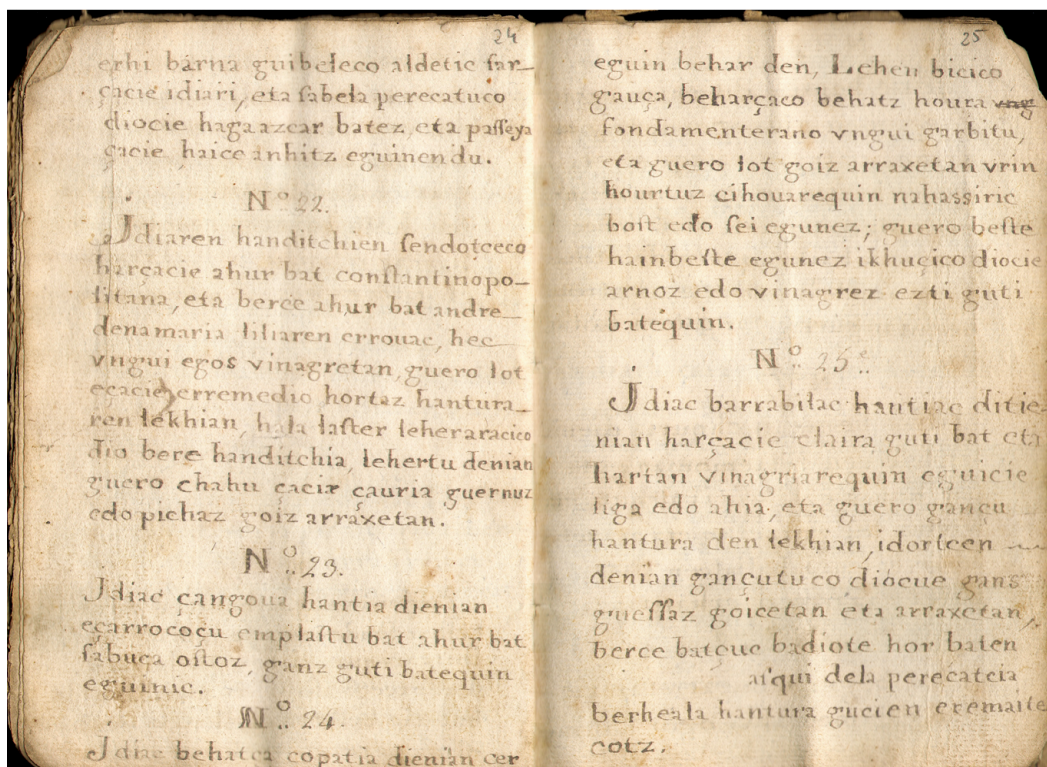 24
erhi barna guibeleco aldetic sar_
çacie idiari, eta sabela perecatuco
diocie hagaazcar batez, eta passeya
çacie, haice anhitz eguinen du.
N.º 22.
Jdiaren handitchien sendotceco
harçacie ahur bat constantinopo_
litana, eta berce ahur bat andre_
denamaria liliaren errouac, hec
vngui egos vinagretan, guero lot
eçacie erremedio hortaz hantura_
ren lekhian, hala laster leheraracico
dio bere handitchia, lehertu denian
guero chahu çacie çauria guernuz
edo pichaz goiz arraxetan.
N.º 23.
Jdiac çangoua hantia dienian
eçarrococu emplastu bat ahur bat
sabuca ostoz, ganz guti batequin
eguinic.
N.º 24.
Jdiac behatça copatia dienian cer
25
eguin behar den, Lehen bicico
gauça, beharçaco behatz houra
fondamenterano vngui garbitu,
eta guero lot goiz arraxetan vrin
hourtuz cihouarequin nahassiric
bost edo sei egunez; guero beste
hainbeste egunez ikhuçico diocie
arnoz edo vinagrez ezti guti
batequin.
N.º 25.
Jdiac barrabilac hantiac ditie_
nian harçacie claira guti bat eta
hartan vinagriarequin eguicie
liga edo ahia, eta guero gançu
hantura den lekhian, idortcen
denian gançutuco diocue gans
guessaz goicetan eta arraxetan,
berce batçuc badiote hor baten
aiqui dela perecatcia
berheala hantura gucien eremaite
cotz.